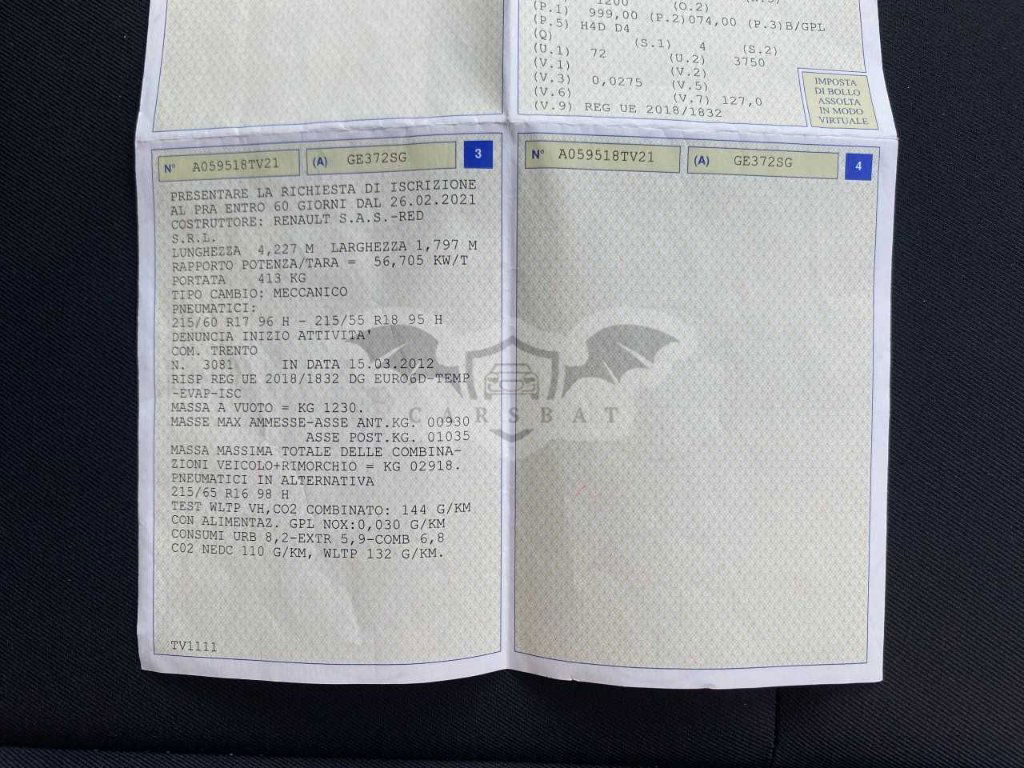 1200 (O.2)
(P.1) 999,00 (P.2)074,00 (P.3)B/GPL
(P.5) H4D D4
(Q) (S.1) 4 (S.2)
(U.1) 72 (U.2) 3750
(V.1) (V.2)
(V.3) 0,0275 (V.5)
(V.6) (V.7) 127,0
(V.9) REG UE 2018/1832
IMPOSTA
DI BOLLO
ASSOLTA
IN MODO
VIRTUALE
N° A059518TV21 (A) GE372SG 3
PRESENTARE LA RICHIESTA DI ISCRIZIONE
AL PRA ENTRO 60 GIORNI DAL 26.02.2021
COSTRUTTORE: RENAULT S.A.S.-RED
S.R.L.
LUNGHEZZA 4,227 M LARGHEZZA 1,797 M
RAPPORTO POTENZA/TARA = 56,705 KW/T
PORTATA 413 KG
TIPO CAMBIO: MECCANICO
PNEUMATICI:
215/60 R17 96 H - 215/55 R18 95 H
DENUNCIA INIZIO ATTIVITA'
COM. TRENTO
N. 3081 IN DATA 15.03.2012
RISP REG UE 2018/1832 DG EURO6D-TEMP
-EVAP-ISC
MASSA A VUOTO = KG 1230.
MASSE MAX AMMESSE-ASSE ANT.KG. 00930
ASSE POST.KG. 01035
MASSA MASSIMA TOTALE DELLE COMBINA-
ZIONI VEICOLO+RIMORCHIO = KG 02918.
PNEUMATICI IN ALTERNATIVA
215/65 R16 98 H
TEST WLTP VH,CO2 COMBINATO: 144 G/KM
CON ALIMENTAZ. GPL NOX:0,030 G/KM
CONSUMI URB 8,2-EXTR 5,9-COMB 6,8
C02 NEDC 110 G/KM, WLTP 132 G/KM.
TV1111
N° A059518TV21 (A) GE372SG 4
CARSBAT